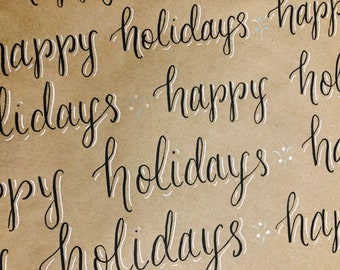 happy holidays happy
holidays happy
happy holidays
holidays happy